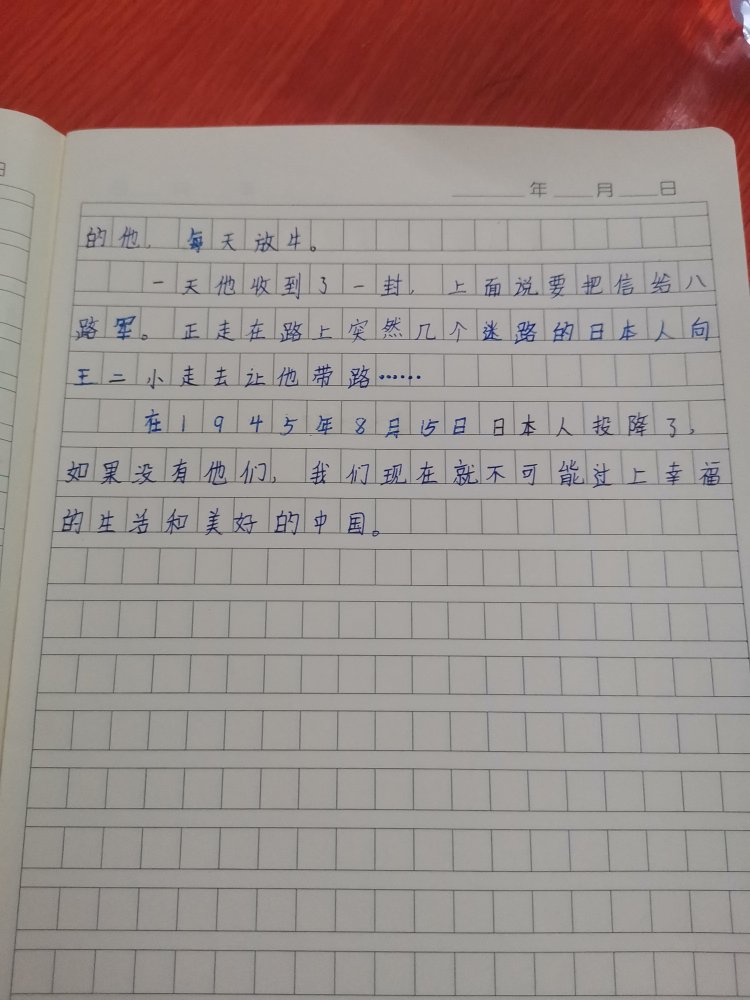 日
年 月 日
的他，每天放牛。
一天他收到了一封，上面说要把信给八
路军。正走在路上突然几个迷路的日本人向
王二小走去让他带路……
在1945年8月15日日本人投降了，
如果没有他们，我们现在就不可能过上幸福
的生活和美好的中国。